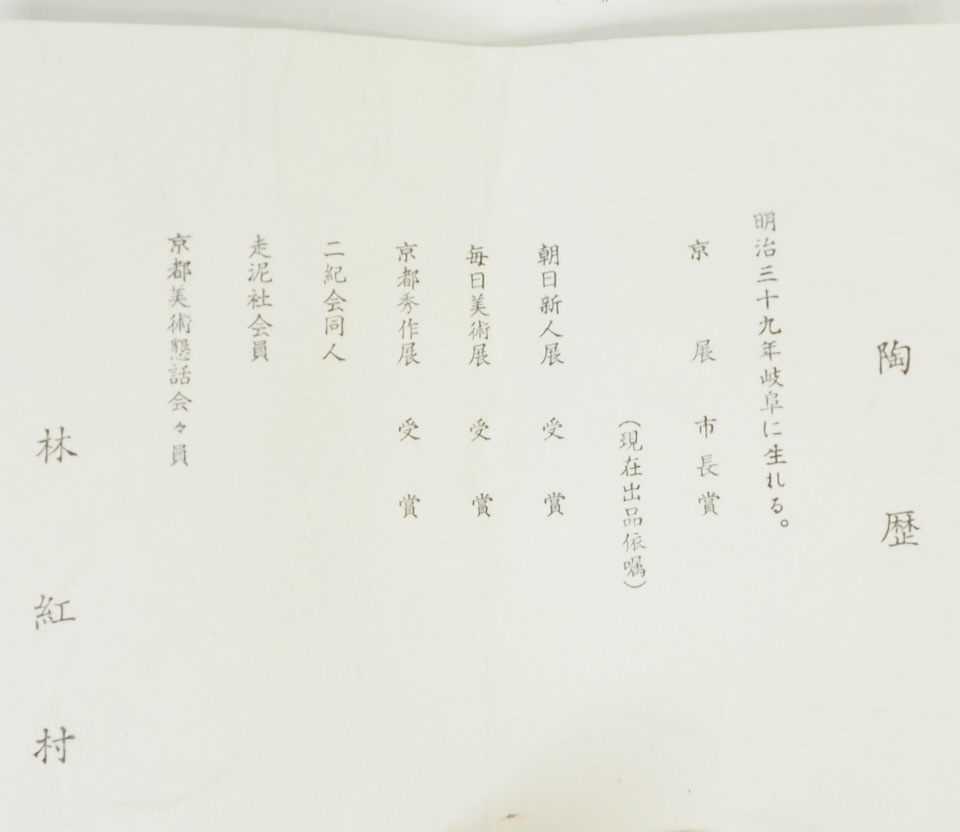 陶歴
明治三十九年岐阜に生れる。
京展市長賞
(現在出品依嘱)
朝日新人展受賞
毎日美術展受賞
京都秀作展受賞
二紀会同人
走泥社会員
京都美術懇話会々員
林紅村